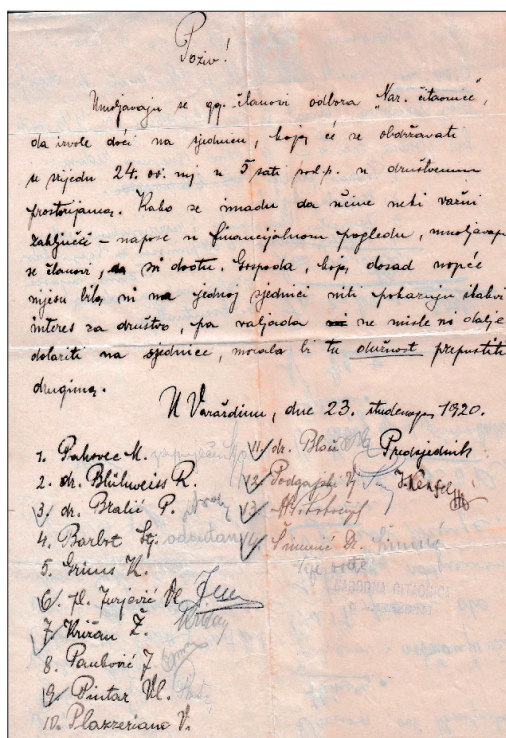 Poziv!
Umoljavaju se gg. članovi odbora "Nar. čitaonice",
da izvole doći na sjednicu, koja će se obdržavati
u srijedu 24. ov. mj. u 5 sati pod.p. u društvenim
prostorijama. Kako se imadu da učine neki važni
zaključci – napose u financijalnom pogledu, umoljavaju
se članovi, da svi dođu. Gospoda, koja dosad uopće
nijesu bila ni na jednoj sjednici niti pokazuju ikakvi
interes za društvo, pa valjada ne misle ni dalje
dolaziti na sjednice, morala bi tu dužnost prepustiti
drugima.
U Varaždinu, dne 23. studenoga 1920.
1. Pahovec M.
2. dr. Blühweiss R.
3. dr. Bralić P.
4. Barbot Stj. odsutan
5. Grims K.
6. pl. Jurjević Vl.
7. Križan Ž.
8. Paulović J.
9. Pintar Vl.
10. Plazzeriano V.
11. dr. Blau
12. Podgajski V.
13.
14. Šimunić D.
Predsjednik